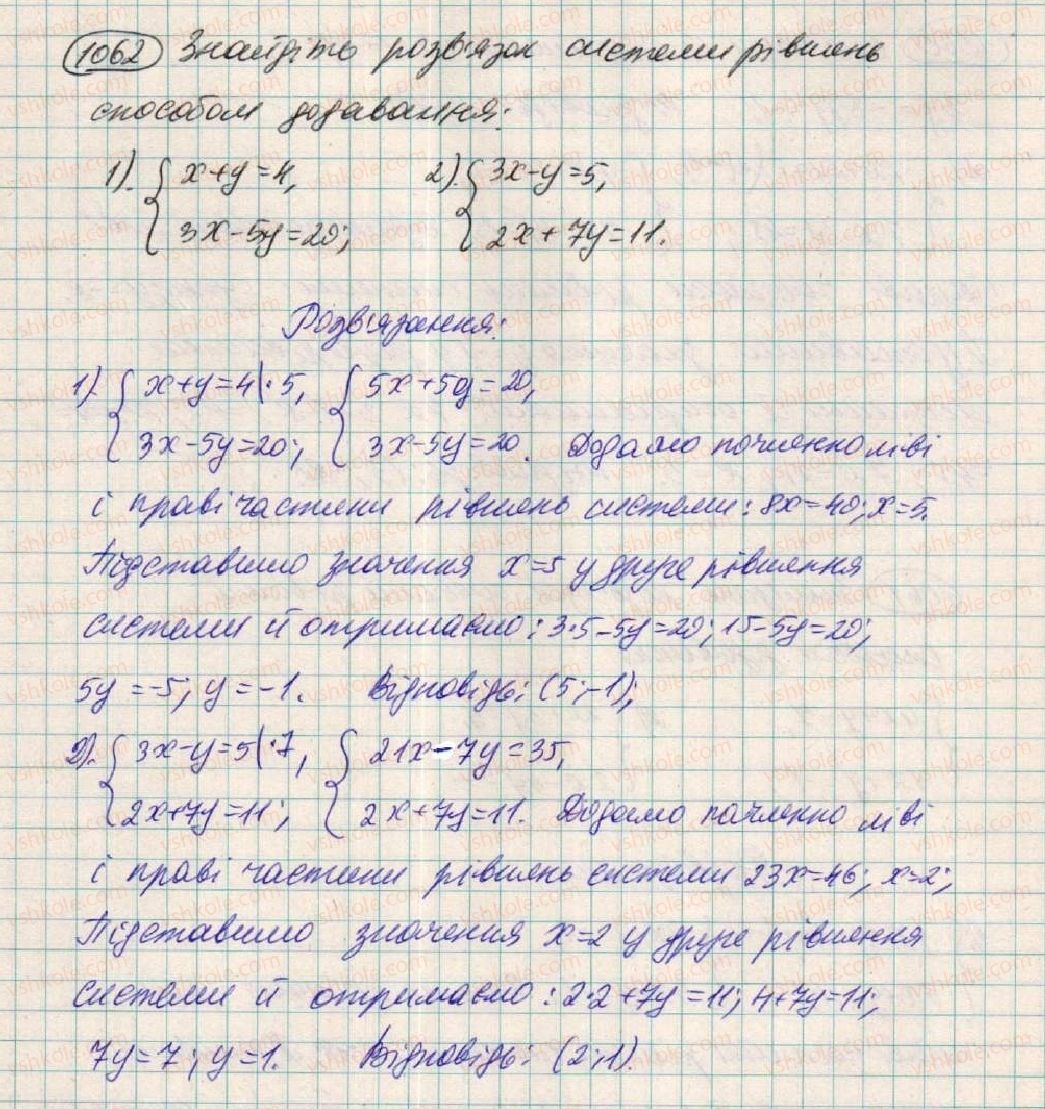 1062 Знайдіть розв'язок системи рівнянь
способом додавання:
1). { x+y=4, 2). { 3x-y=5,
3x-5y=20; 2x+7y=11.
Розв'язання:
1). { x+y=4|·5, { 5x+5y=20,
3x-5y=20; 3x-5y=20. Додамо почленно ліві
і праві частини рівнянь системи: 8x=40; x=5.
Підставимо значення x=5 у друге рівняння
системи й отримаємо: 3·5-5y=20; 15-5y=20;
5y=-5; y=-1. Відповідь: (5;-1);
2). { 3x-y=5|·7, { 21x-7y=35,
2x+7y=11; 2x+7y=11. Додамо почленно ліві
і праві частини рівнянь системи 23x=46; x=2;
Підставимо значення x=2 у друге рівняння
системи й отримаємо: 2·2+7y=11; 4+7y=11;
7y=7; y=1. Відповідь: (2;1).